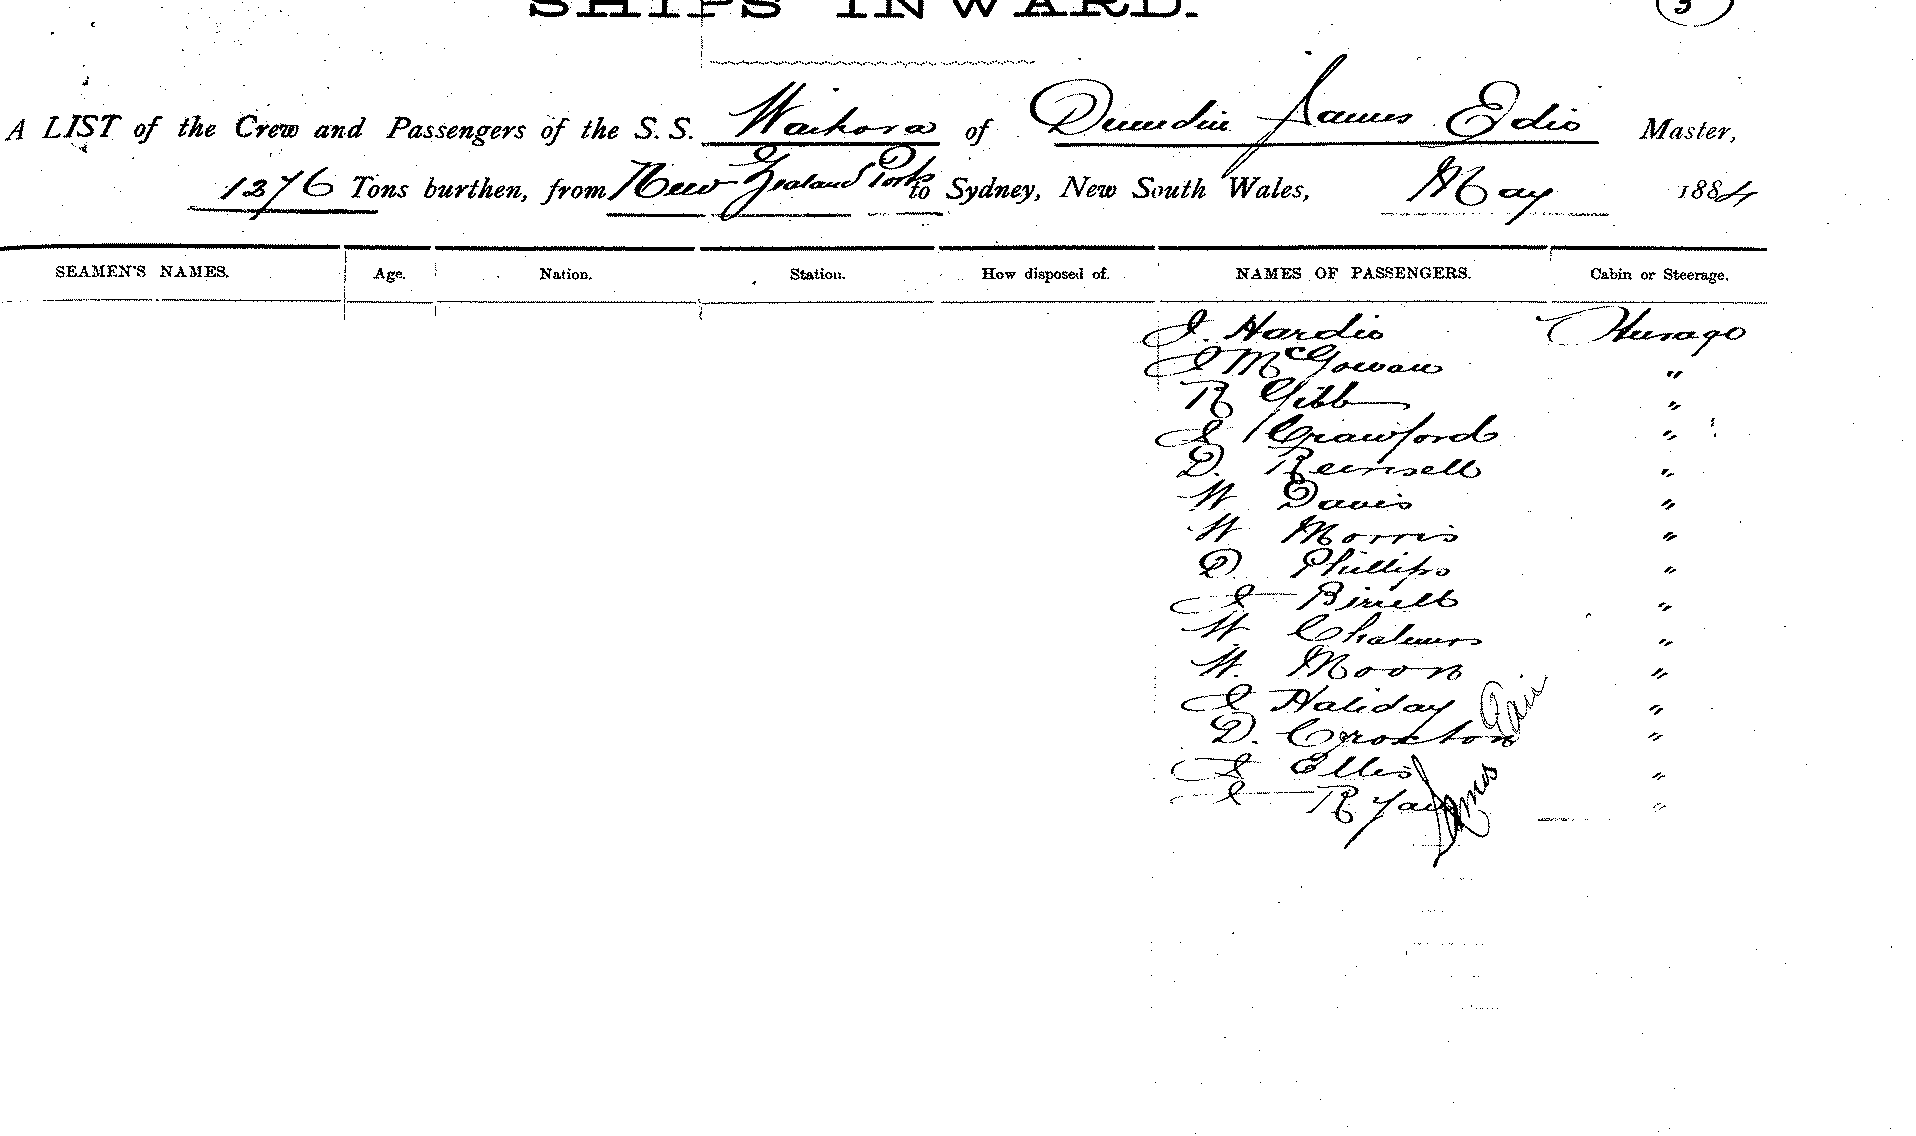 SHIPS INWARD.
A LIST of the Crew and Passengers of the S.S. Waihora of Dunedin James Edie Master,
1276 Tons burthen, from New Zealand Ports to Sydney, New South Wales, May 1884
SEAMEN'S NAMES. Age. Nation. Station. How disposed of. NAMES OF PASSENGERS. Cabin or Steerage.
J. Hardie Steerage
J McGowan "
R Gibb "
J Crawford "
D. "
W Davis "
W Morris "
D Phillips "
J Birrell "
W Chalmers "
W. Moon "
J Haliday "
D. Croxton "
J Ellis "
J Ryan "
James Edie